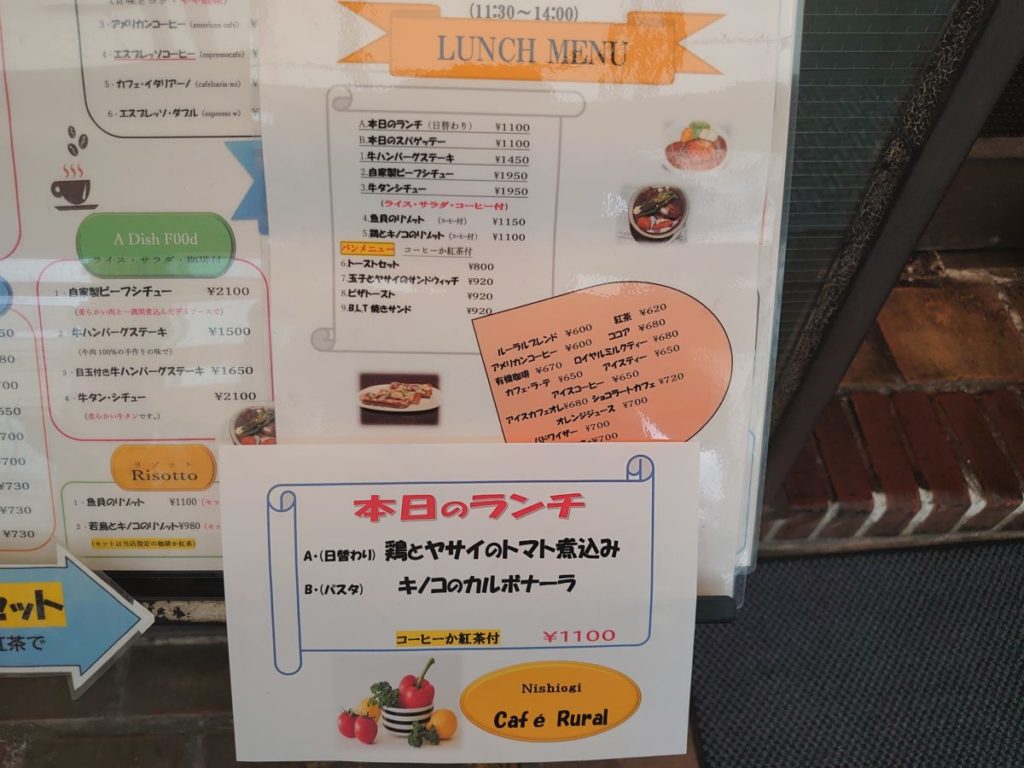 3・アメリカンコーヒー (american café) ¥
4・エスプレッソコーヒー (espressocafe) ¥
5・カフェ・イタリアーノ (cafeitaria-no) ¥
6・エスプレッソ・ダブル (espresso w) ¥
A Dish F00d
ライス・サラダ・珈琲付
1・自家製ビーフシチュー ¥2100
(柔らかい肉と一週間煮込んだデミソースで)
2・牛ハンバーグステーキ ¥1500
(牛肉100%の手作りの味で)
3・目玉付き牛ハンバーグステーキ ¥1650
4・牛タン・シチュー ¥2100
(柔らかい牛タンです。)
リゾット
Risotto
1・魚貝のリゾット ¥1100 (セッ
2・若鳥とキノコのリゾット¥980 (セッ
(セットは当店指定の珈琲か紅茶)
650
700
¥700
¥730
¥730
セット
紅茶で
(11:30～14:00)
LUNCH MENU
A.本日のランチ (日替わり) ¥1100
B.本日のスパゲッテー ¥1100
1.牛ハンバーグステーキ ¥1450
2.自家製ビーフシチュー ¥1950
3.牛タンシチュー ¥1950
(ライス・サラダ・コーヒー付)
4.魚貝のリゾット (コーヒー付) ¥1150
5.鶏とキノコのリゾット (コーヒー付) ¥1100
パンメニュー コーヒーか紅茶付
6.トーストセット ¥800
7.玉子とヤサイのサンドウィッチ ¥920
8.ピザトースト ¥920
9.B.L.T 焼きサンド ¥920
ルーラルブレンド ¥600 紅茶 ¥620
アメリカンコーヒー ¥600 ココア ¥680
有機珈琲 ¥670 ロイヤルミルクティー ¥680
カフェ・ラ・テ ¥650 アイスティー ¥650
アイスコーヒー ¥650
アイスカフェオレ¥680 ショコラートカフェ ¥720
オレンジジュース ¥700
バドワイザー ¥700
¥700
本日のランチ
A・(日替わり) 鶏とヤサイのトマト煮込み
B・(パスタ) キノコのカルボナーラ
コーヒーか紅茶付 ¥1100
Nishiogi
Café Rural